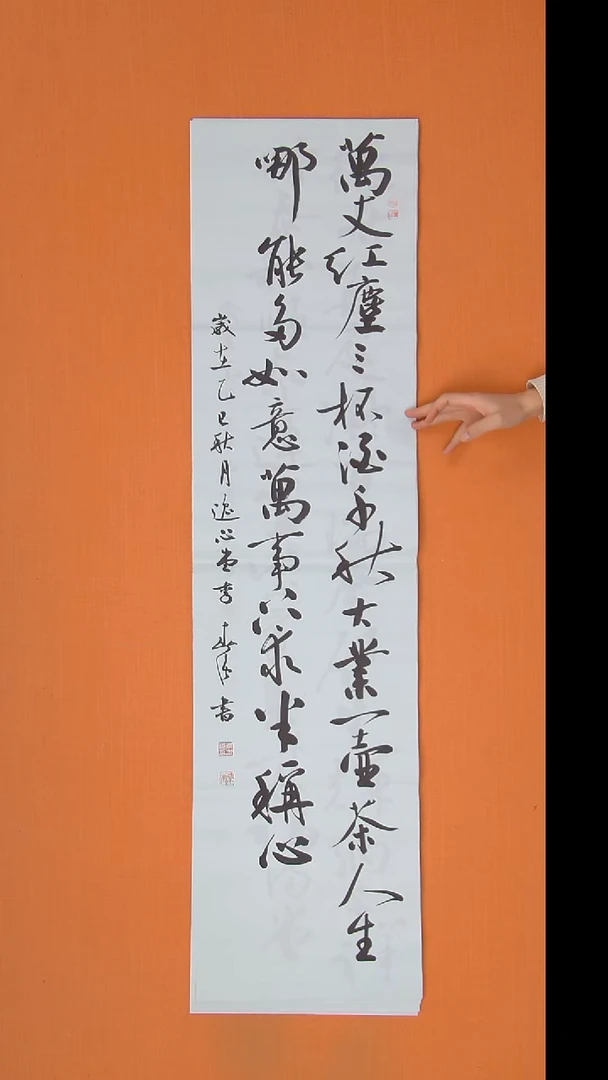 萬丈红塵三杯酒千秋大業一壺茶人生
哪能多如意萬事只求半稱心
歲在乙巳秋月逸心堂李春泽書